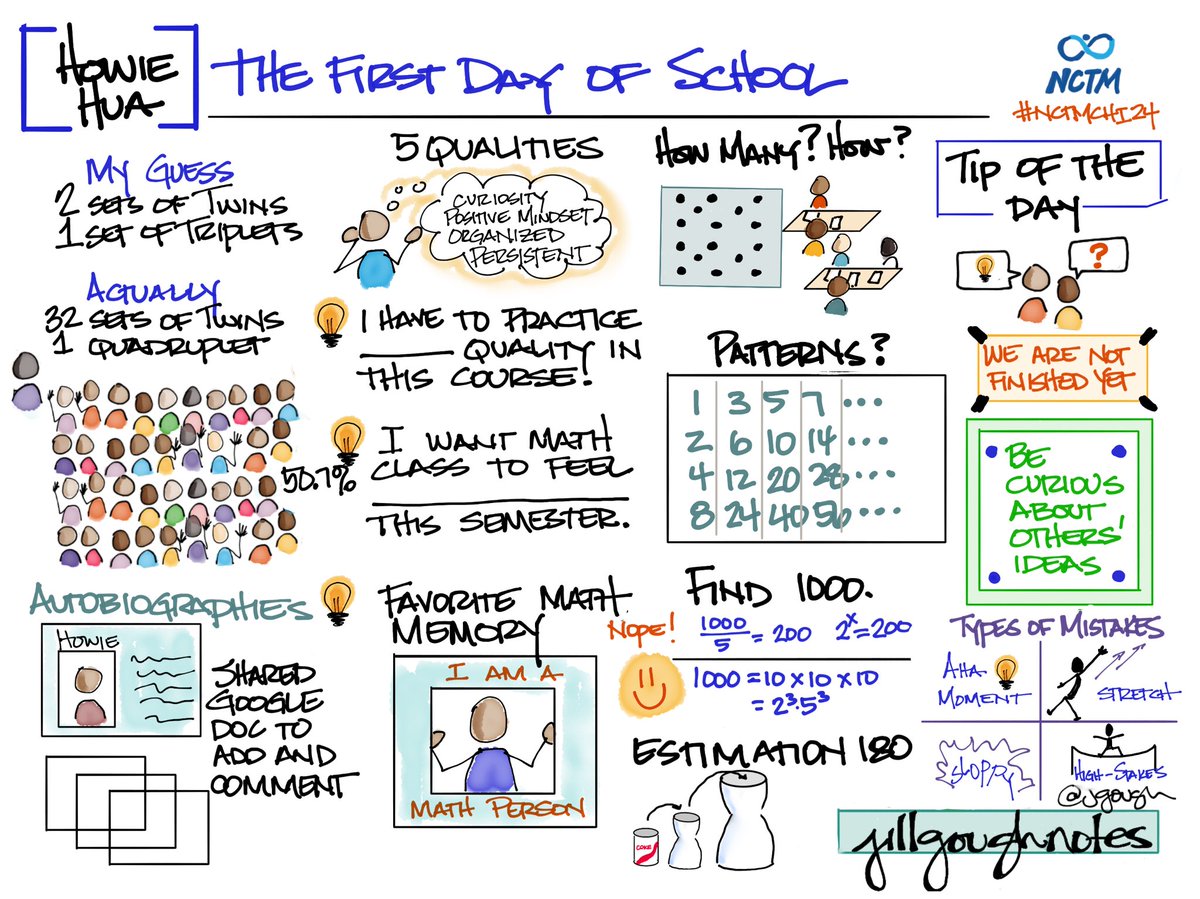 HOWIE
HUA
THE FIRST DAY OF SCHOOL
NCTM
#NCTMCHI24
MY GUESS
2 SETS OF TWINS
1 SET OF TRIPLETS
ACTUALLY
32 SETS OF TWINS
1 QUADRUPLET
50.7%
AUTOBIOGRAPHIES
HOWIE
SHARED
GOOGLE
DOC TO
ADD AND
COMMENT
5 QUALITIES
CURIOSITY
POSITIVE MINDSET
ORGANIZED
PERSISTENT
I HAVE TO PRACTICE
____ QUALITY IN
THIS COURSE!
I WANT MATH
CLASS TO FEEL
____
THIS SEMESTER.
FAVORITE MATH
MEMORY
I AM A
MATH PERSON
HOW MANY? HOW?
PATTERNS?
1 3 5 7 ...
2 6 10 14 ...
4 12 20 28 ...
8 24 40 56 ...
FIND 1000.
NOPE!
1000/5 = 200 2ˣ=200
1000 = 10 x 10 x 10
= 2³·5³
ESTIMATION 180
COKE
TIP OF THE
DAY
?
WE ARE NOT
FINISHED YET
BE
CURIOUS
ABOUT
OTHERS'
IDEAS
TYPES OF MISTAKES
AHA
MOMENT
STRETCH
SLOPPY
HIGH-STAKES
@jgough
jillgoughnotes